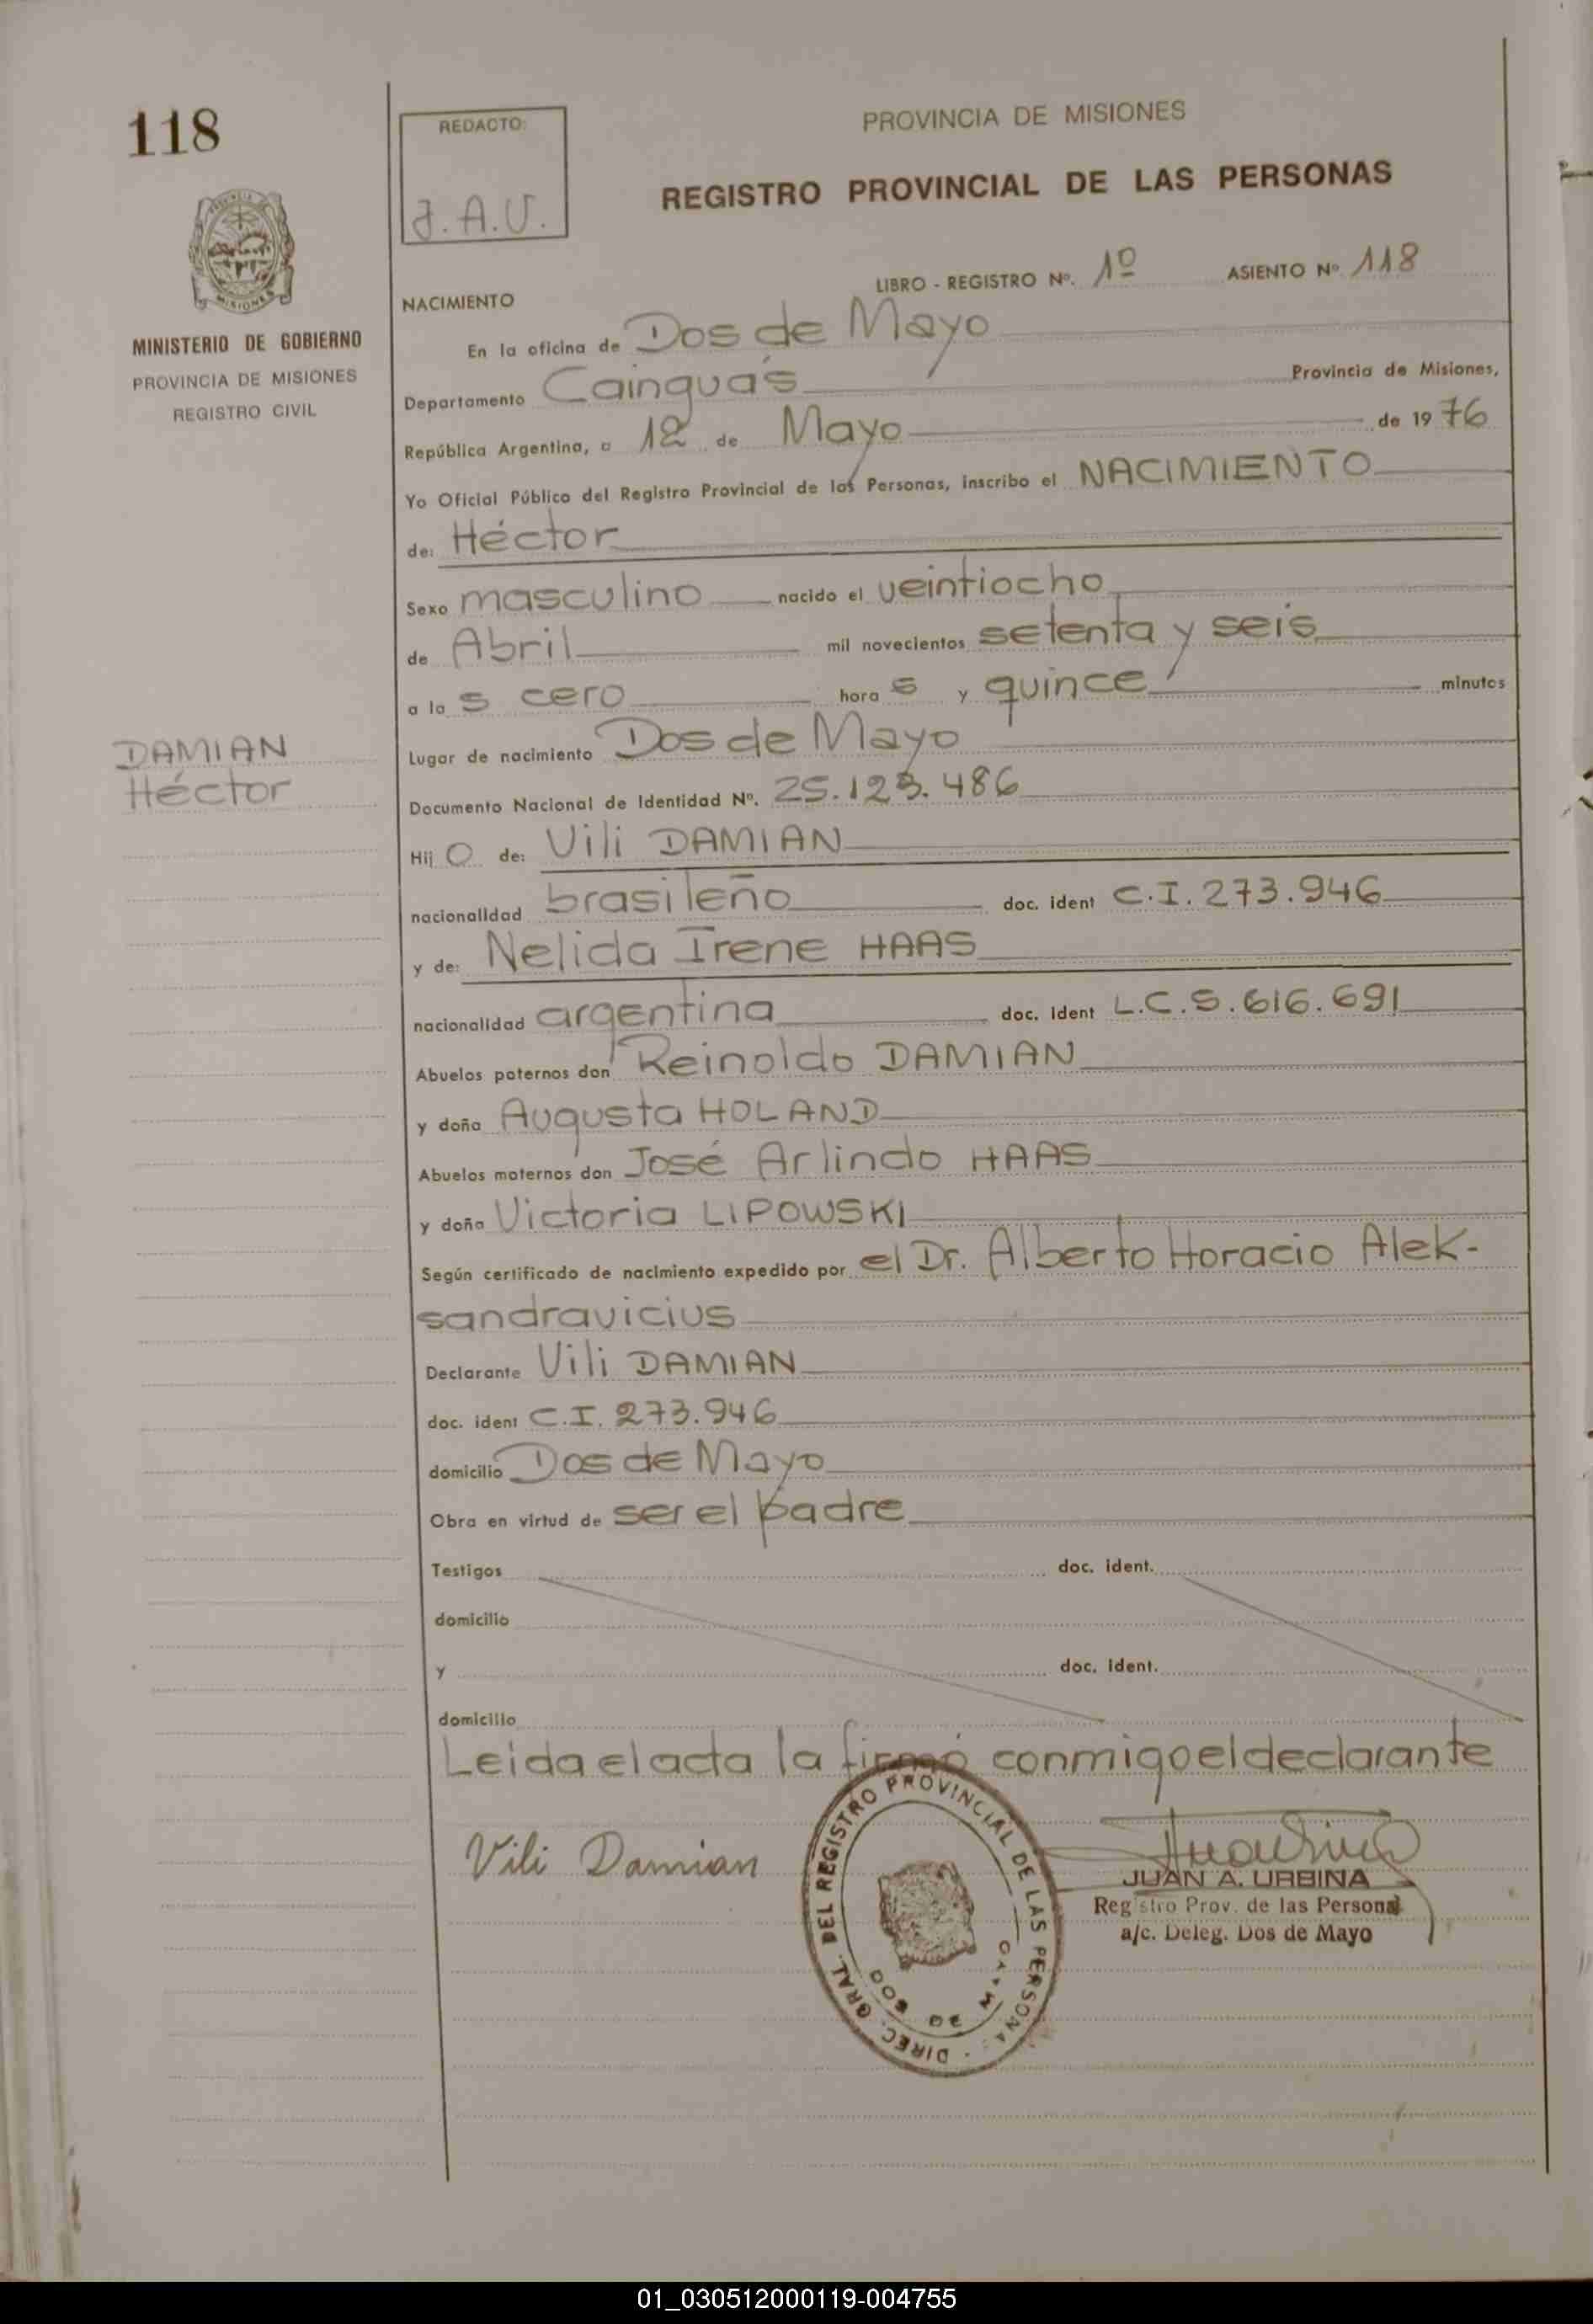 118
REDACTO:
J.A.U.
PROVINCIA DE MISIONES
REGISTRO PROVINCIAL DE LAS PERSONAS
LIBRO - REGISTRO Nº. 1º ASIENTO Nº 118
MINISTERIO DE GOBIERNO
PROVINCIA DE MISIONES
REGISTRO CIVIL
NACIMIENTO
En la oficina de Dos de Mayo
Departamento Cainguás Provincia de Misiones,
República Argentina, a 12 de Mayo de 1976
Yo Oficial Público del Registro Provincial de las Personas, inscribo el NACIMIENTO
de: Héctor
Sexo masculino nacido el veintiocho
de Abril mil novecientos setenta y seis
a las cero horas y quince minutos
DAMIAN
Héctor
Lugar de nacimiento Dos de Mayo
Documento Nacional de Identidad Nº. 25.123.486
Hijo de: Vili DAMIAN
nacionalidad brasileño doc. ident C.I. 273.946
y de: Nelida Irene HAAS
nacionalidad argentina doc. ident L.C.5.616.691
Abuelos paternos don Reinoldo DAMIAN
y doña Augusta HOLAND
Abuelos maternos don José Arlindo HAAS
y doña Victoria LIPOWSKI
Según certificado de nacimiento expedido por el Dr. Alberto Horacio Alek-
sandravicius
Declarante Vili DAMIAN
doc. ident C.I. 273.946
domicilio Dos de Mayo
Obra en virtud de ser el padre
Testigos doc. ident.
domicilio
y doc. ident.
domicilio
Leida el acta la firmó conmigo el declarante
Vili Damian
DIREC. GRAL. DEL REGISTRO PROVINCIAL DE LAS PERSONA
DOS DE MAYO
JUAN A. URBINA
Registro Prov. de las Personas
a/c. Deleg. Dos de Mayo
01_030512000119-004755